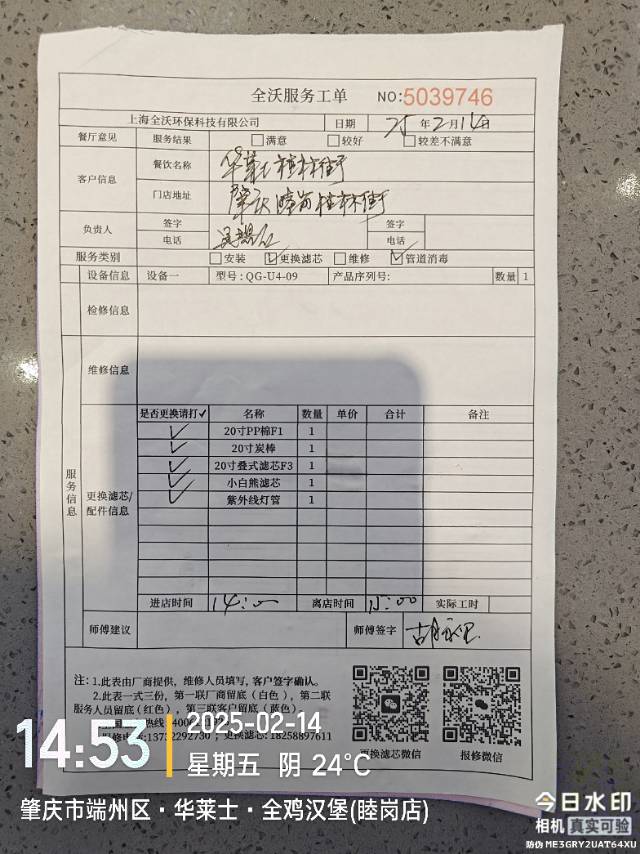 全沃服务工单 NO:5039746
上海全沃环保科技有限公司 日期 25年2月14日
餐厅意见 服务结果 满意 较好 较差不满意
客户信息 餐饮名称 华莱士桂林街
门店地址 肇庆睦岗桂林街
负责人 签字 签字
电话 电话
服务类别 安装 ✓更换滤芯 维修 ✓管道消毒
设备信息 设备一 型号:QG-U4-09 产品序列号: 数量 1
检修信息
维修信息
服务信息
更换滤芯/配件信息
是否更换请打✓ 名称 数量 单价 合计 备注
✓ 20寸PP棉F1 1
✓ 20寸炭棒 1
✓ 20寸叠式滤芯F3 1
✓ 小白熊滤芯 1
✓ 紫外线灯管 1
进店时间 14:00 离店时间 15:00 实际工时
师傅建议 师傅签字
注:1.此表由厂商提供,维修人员填写,客户签字确认。
2.此表一式三份,第一联厂商留底(白色),第二联
服务人员留底(红色),第三联客户留底(蓝色)。
13732292730 更换滤芯:18258897611
更换滤芯微信 报修微信
14:53 2025-02-14
星期五 阴 24°C
肇庆市端州区·华莱士·全鸡汉堡(睦岗店)
今日水印
相机 真实可验
防伪 ME3GRY2UAT64XU